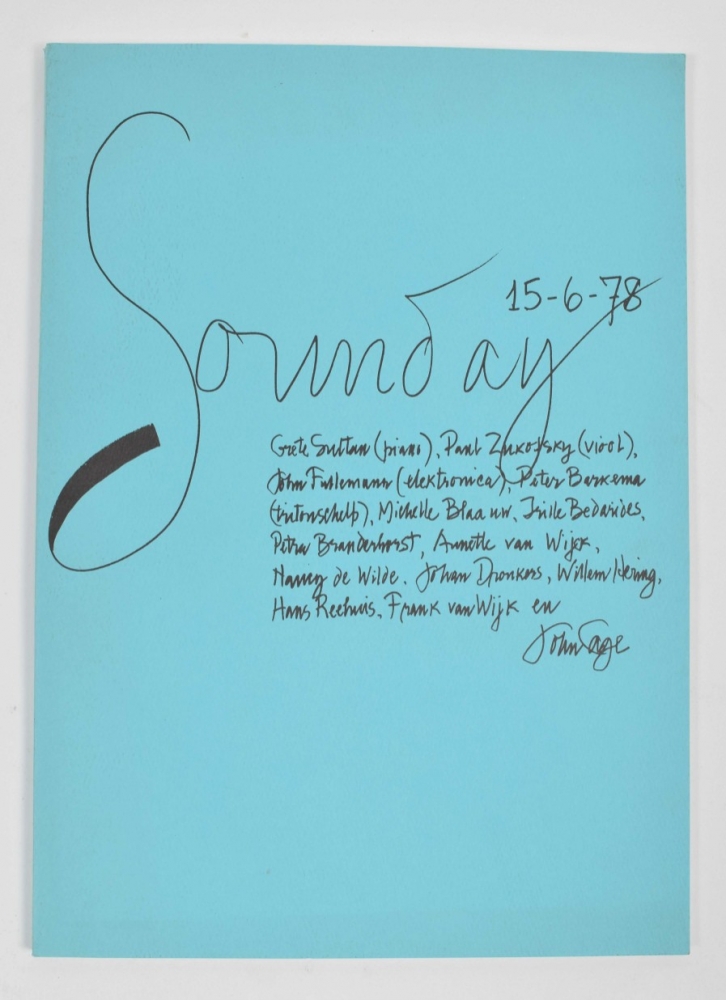 15-6-78
Sounday
Grete Sultan (piano), Paul Zukofsky (viool),
John Fullemann (elektronica), Peter Barkema
(tritonschelp), Michelle Blaauw, Jrille Bedarides,
Petra Branderhorst, Annette van Wijck,
Nancy de Wilde, Johan Dronkers, Willem Hering,
Hans Reehuis, Frank van Wijk en
John Cage